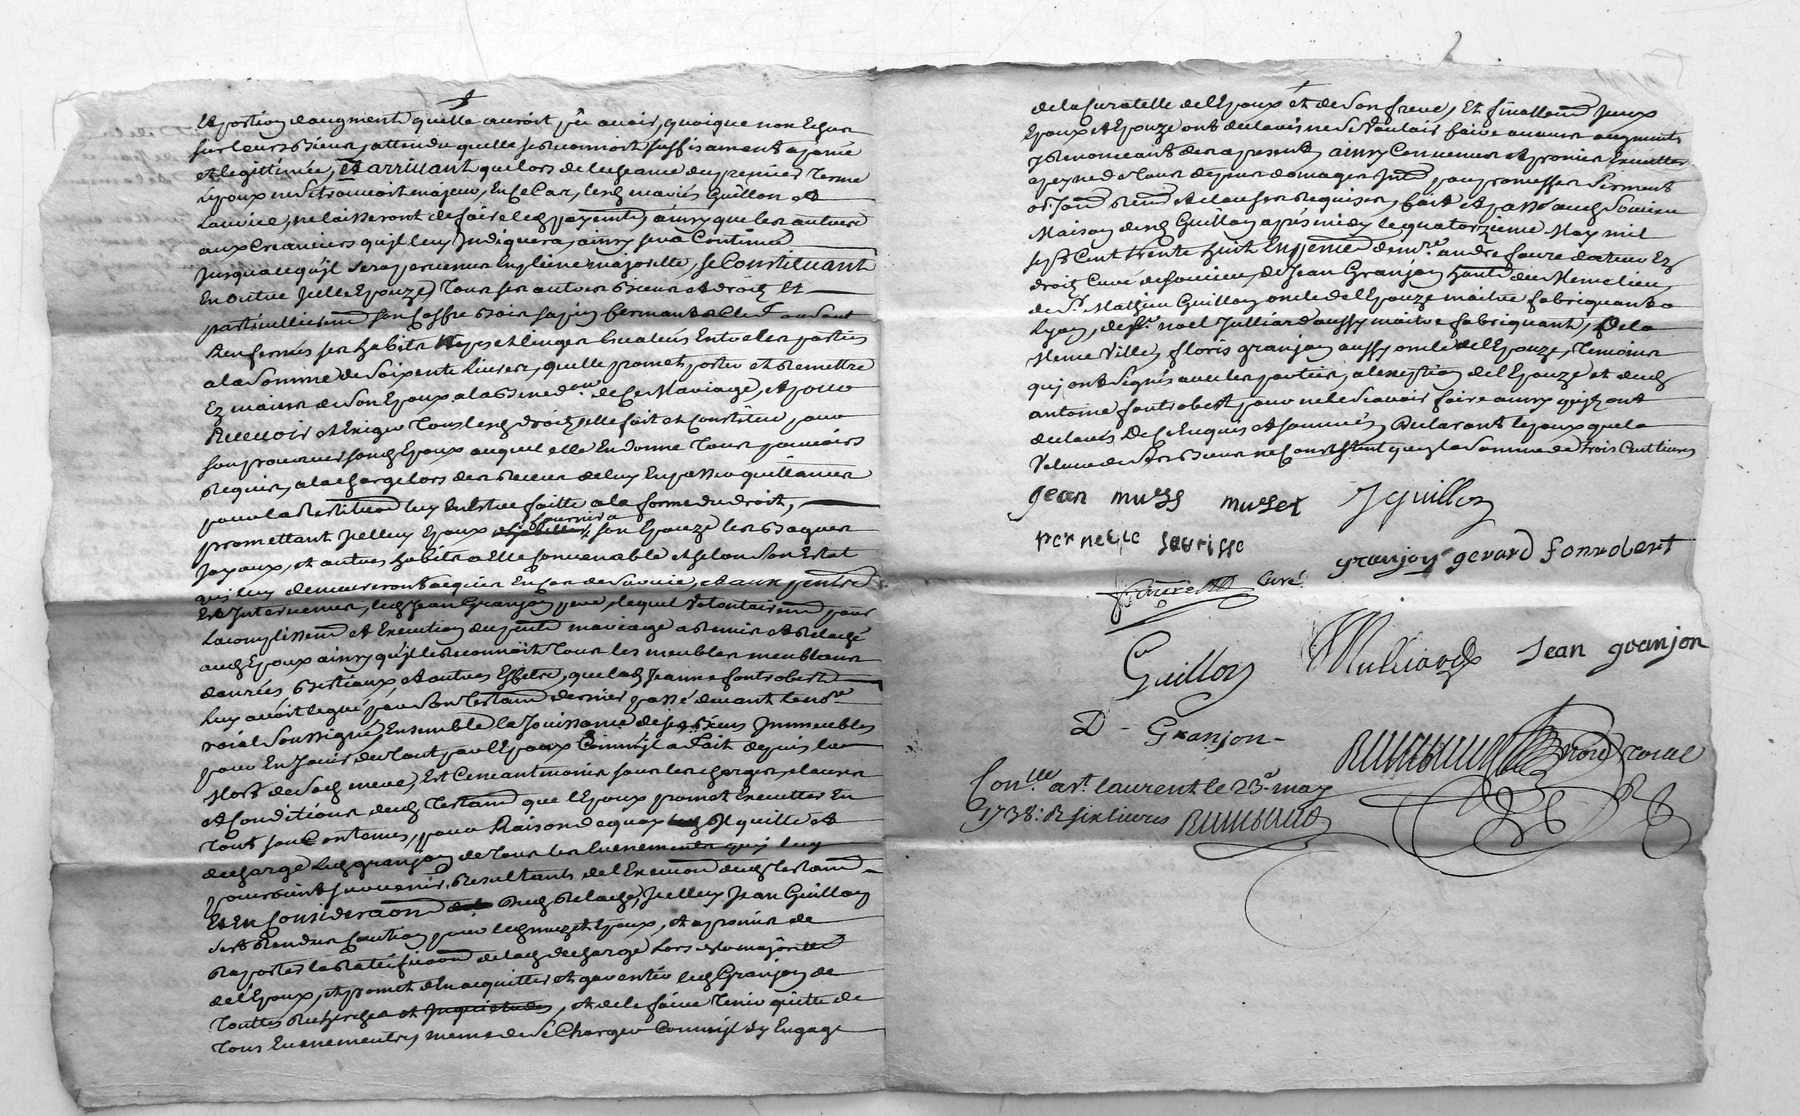 Et portion daugment quelle auroit pû avoir, quoique non Echeu
sur leurs biens, attendu quelle se reconnoit suffisament apanée
et legittimée, Et arrivant que lors de lecheance du premier terme
Lépoux ne se trouvoit majeur, En ce Cas, lesd. mariés Guillon et
ne laisseront de faire lesd. payements, ainsy que les autres
aux Creanciers quil leur Indiquera, ainsy sera Continué
Jusqua ce quil sera parvenu En pleine majorité, se Constituant
En outre Jcelle Epouze, tous ses autres biens et droits Et
particullierem. son Coffre bois sapin fermant à Clef, ou sont
Renfermés ses habits nipes et linges Evalués Entre les parties
a la somme de soixente livres, quelle promet porter et remettre
Ez mains de son Epoux a la bened.on de Ce Mariage, et pour
Recevoir et Exiger tous lesd. droits, elle fait et Constitue pour
son procureur sond. Epoux auquel elle En donne tous pouvoirs
Requis, a la charge lors des receus de luy En passer quittances
pour la restitution luy En Estre faitte a la forme du droit,
promettant Jcelluy Epoux fournir a son Epouze les bagues
Joyaux, et autres habits a Elle Convenable et selon son Estat
qui luy demeureront acquis En Cas de survie, et aux p.ntes
Est Intervenu, led. Jean Granjon pere, lequel volontairem. pour
Lacomplissem. et Execution du p.nt mariage a remis et relaché
aud. Epoux ainsy quil le reconnoit tous les meubles meublans
danrées bestiaux, et autres Effets, que lad. Jeanne fontrobert
Luy avoit legué par son testam. dernier passé devant le no.re
roial soussigné, Ensemble la Jouissance de ses biens Immeubles
pour En Jouir du tout par lEpoux Comme il a Fait depuis la
Mort de sad. mere, Et Ce neantmoins sous les charges, clauses
et Conditions dud. testam. que lEpoux promet Executter En
tout son Contenu, pour Raison de quoy Il quitte et
decharge led. granjon de tous les Evenements qui luy
pourroient survenir, resultants de lExecution dud. testam.
Et En Consideraon Dud. Relaché, Jcelluy Jean Guillon
sest rendu Caution pour led. muzet Epoux, et a promis de
raporter la ratificaon de lad. decharge Lors de la majorité
de lEpoux, et promet den acquitter et garentir led. Granjon de
toutes recherches et Inquietudes, et de le faire tenir quitte de
tous Evenements, meme de se Charger Comme il sy Engage
de la Curatelle de lEpoux et de son frere, Et finallem. Jceux
Epoux et Epouze ont declaré ne se vouloir faire aucun augment
y renonceant des a present, ainsy Convenu et promis Executter
a peyne de tous depens domages Jnt. par promesses serment
obligaon. renon. et clauses requises, fait et passé aud. Soucieu
Maison dud. Guillon apres midy le quatorzieme May mil
sept Cent trente huit En presence de m.re andré faure docteur Ez
droits Curé de Soucieu, de Jean Granjon habitant dud. lieu,
de S.r Mathieu Guillon oncle de lEpouze maitre fabriquant a
Lyon, de S.r noel Julliard aussy maitre fabriquant, de la
Meme Ville, floris granjon aussy oncle de lEpouze, temoins
qui ont signés avec les parties, a lexeption de lEpouze et dud.
antoine fontrobert, pour ne le sçavoir faire ainsy quils ont
declarés De Ce Enquis et sommés, Declarant lepoux que la
valeur de ses biens ne Consistent qu'en la somme de trois Cent livres
Jean muss musset J guillon
pernette
granjon gerard fonrobert
faure Curé
Guillon Julliard Jean granjon
D - Granjon -
no.re roial
Con.lle a s.t laurent le 23.e may
1738: R six livres